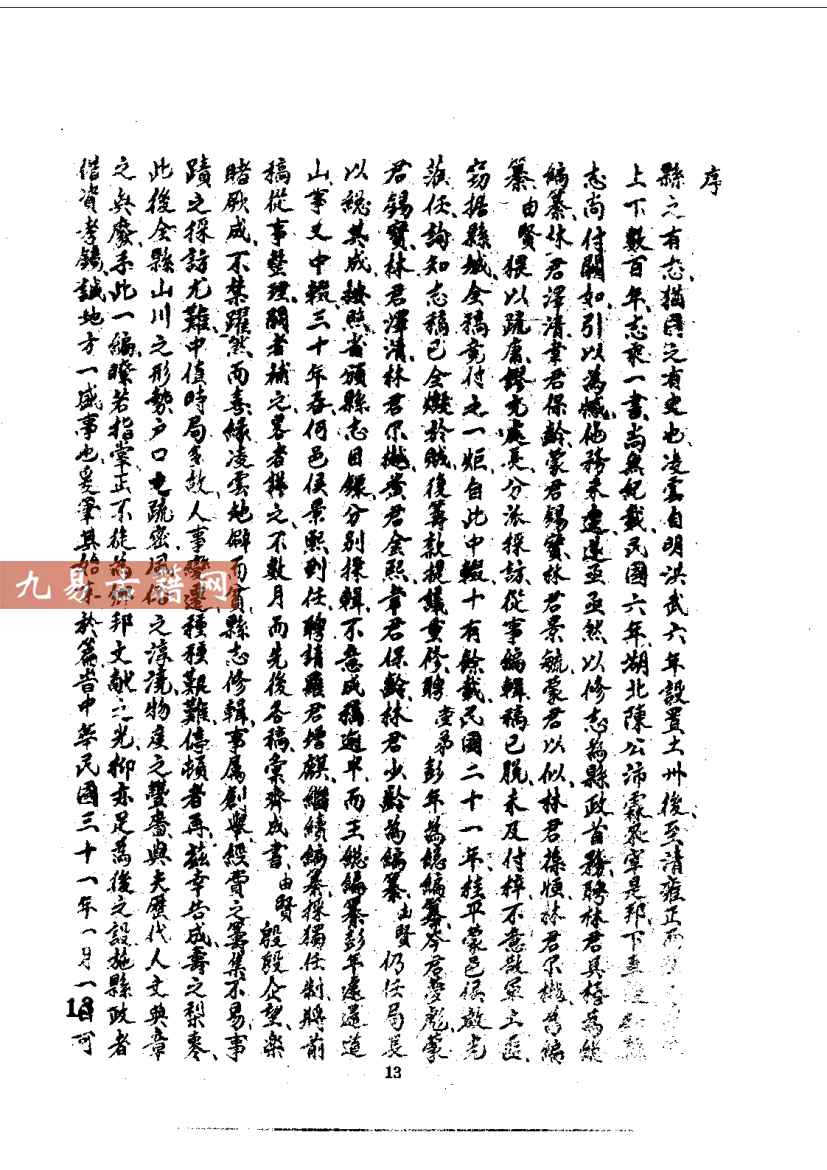 序
縣之有志猶國之有史也凌雲自明洪武六年設置土州後至清雍正
上下數百年志乘一書尚無紀載民國六年湖北陳公沛霖來宰是邦下車
志尚付闕如引以為憾他務未遑遂亟亟然以修志為縣政首務聘林君其椿為總
編纂林君澤清韋君保齡蒙君錫寶林君景毓蒙君以似林君葆煩林君尔樾為編
纂由賢猥以疏庸謬充處長分派採訪從事編輯稿已脫未及付梓不意敵軍土匪
竊据縣城全稿竟付之一炬自此中輟十有餘載民國二十一年桂平蒙邑侯啟光
蒞任詢知志稿已全燬於賊復籌款提議重修聘堂弟彭年為總編纂岑君夢彪蒙
君錫寶林君澤清林君尔樾黃君金熙韋君保齡林君少齡為編纂由賢仍任局長
以總其成按照省頒縣志目錄分別採輯不意成稿過半而王總編纂彭年遽返道
山事又中輟三十年春何邑侯景熙到任聘請羅君增麒繼續編纂採獨任制將前
稿從事整理闕者補之畧者擇之不數月而先後各稿彙齊成書由賢殷殷企望樂
睹厥成不禁躍然而喜緣凌雲地僻而貧縣志修輯事属創舉經費之籌集不易事
蹟之採訪尤難中值時局多故人事變遷種種艱難停頓者再茲幸告成壽之梨棗
此後全縣山川之形勢戶口之疏密風俗之淳澆物產之豐嗇與夫歷代人文典章
之興廢手此一編瞭若指掌正不徒為鄉邦文献之光抑亦足為後之設施縣政者
借資考鏡誠地方一盛事也爰筆其始末於篇旹中華民國三十一年一月一日可
九易古籍网
13
13